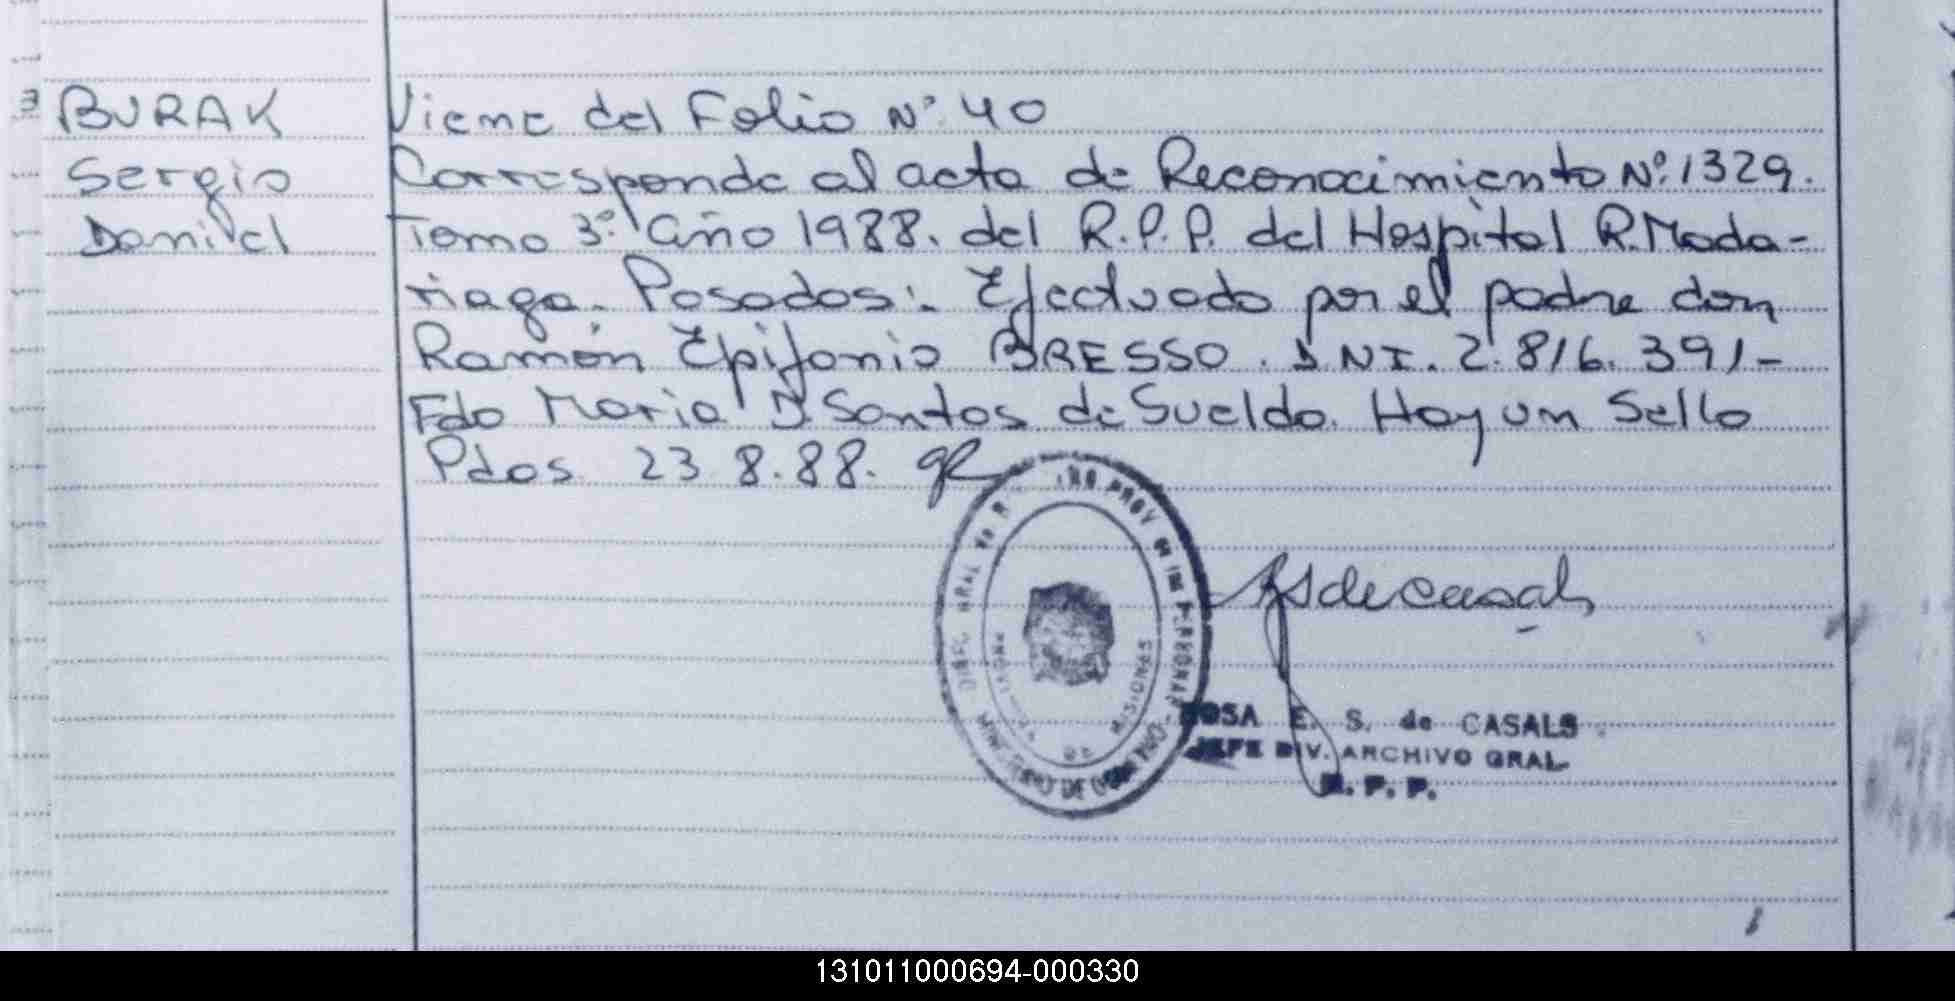 BURAK
Sergio
Daniel
Viene del Folio Nº 40
Corresponde al acta de Reconocimiento Nº 1329.
Tomo 3º año 1988. del R.P.P. del Hospital R. Mada-
riaga. Posadas:- Efectuado por el padre don
Ramón Epifanio BRESSO. D.N.I. 2.816.391-
Fdo Maria D. Santos de Sueldo. Hay un Sello
Pdas. 23.8.88.
PROV
MISIONES
ROSA E. S. de CASALS
JEFE DIV. ARCHIVO GRAL
R. P. P.
131011000694-000330